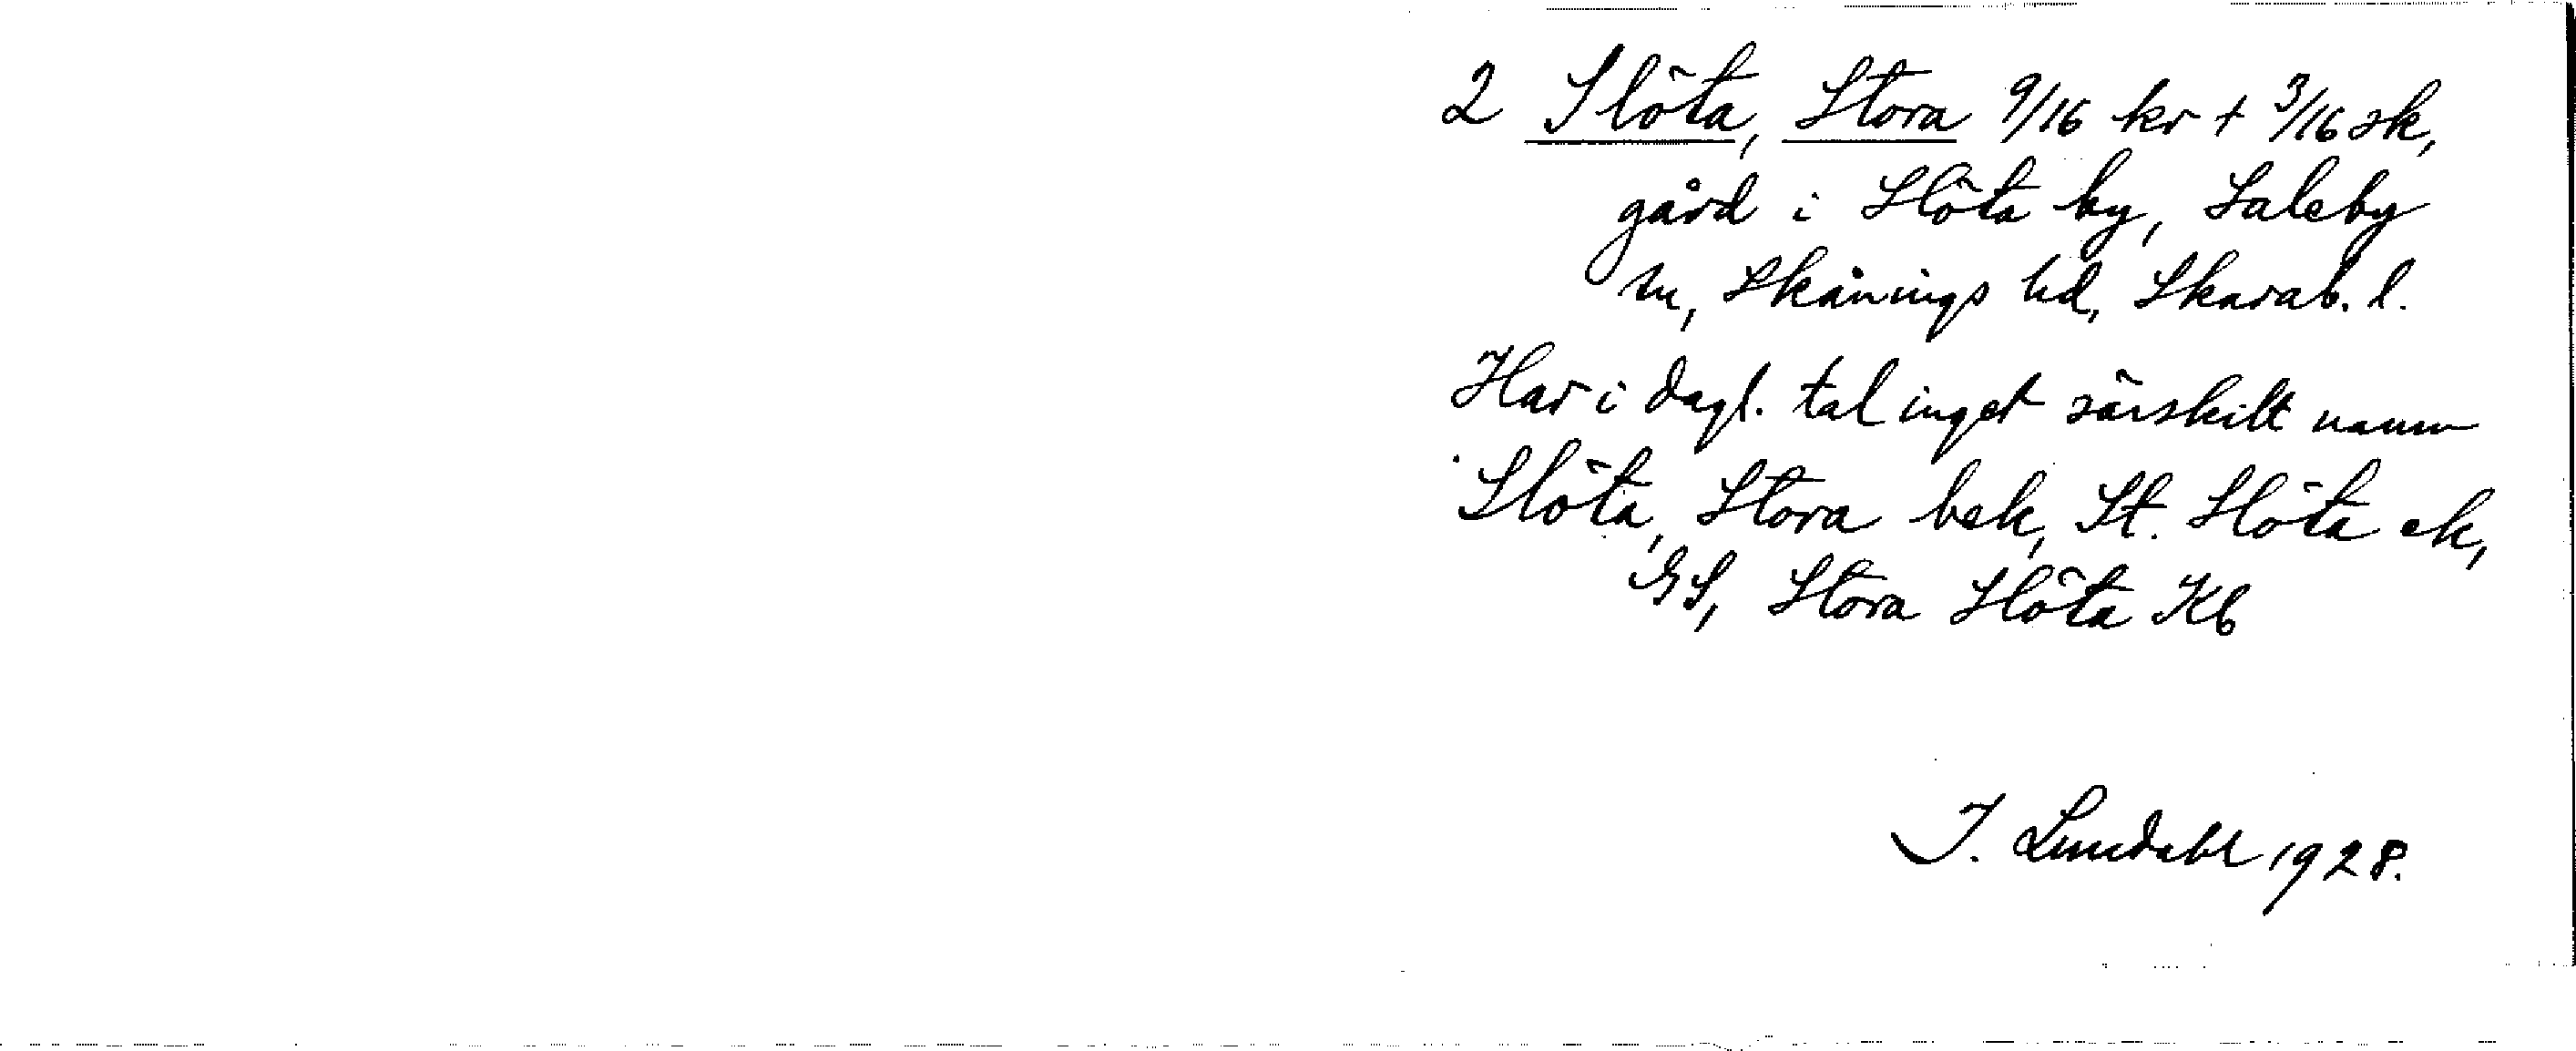 2 Slöta, Stora 9/16 kr + 3/16 sk,
gård i Slöta by, Saleby
sn, Skånings hd, Skarab. l.
Har i dagl. tal inget särskilt namn
Slöta, Stora bek, St. Slöta ek,
GS, Stora Slöta Kb
J. Lundahl 1928.